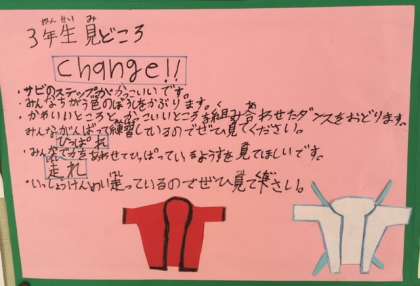 3年生 見どころ
change!!
・サビのステップがかっこいいです。
・みんなちがう色のぼうしをかぶります。
・かわいいところと、かっこいいところを組み合わせたダンスをおどります。
みんながんばって練習しているのでぜひ見てください。
ひっぱれ
・みんなで力をあわせてひっぱっているようすを見てほしいです。
走れ
・いっしょうけんめい走っているのでぜひ見てください。